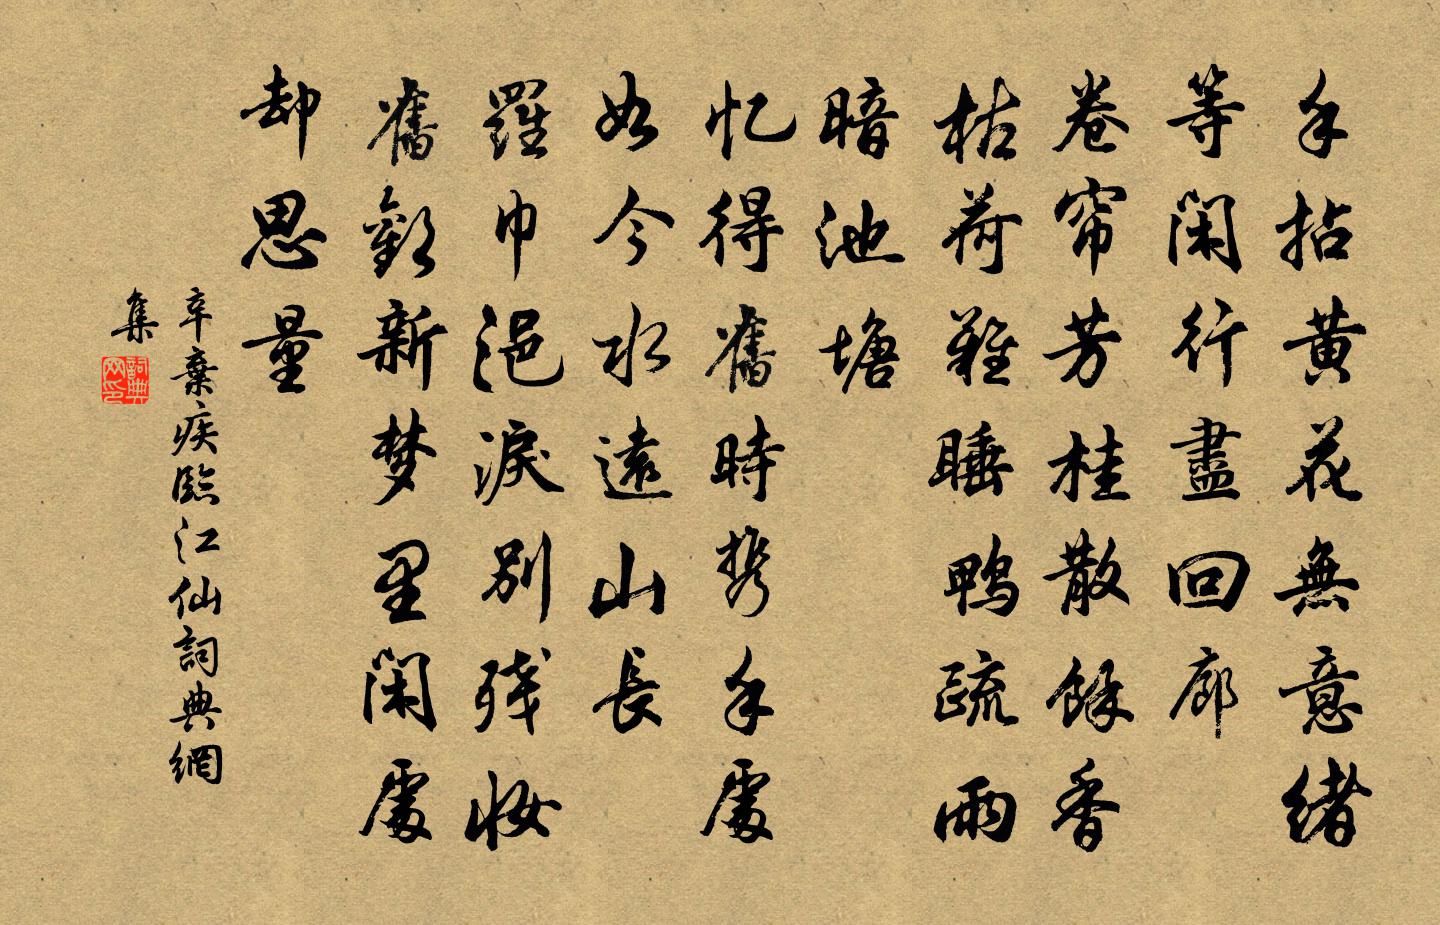 手拈黄花無意緒
等閑行盡回廊
卷帘芳桂散餘香
枯荷難睡鴨疏雨
暗池塘
忆得舊時携手處
如今水遠山長
羅巾浥淚别残妝
舊歡新梦里閑處
却思量
辛棄疾臨江仙詞典網
集
詞典
网印